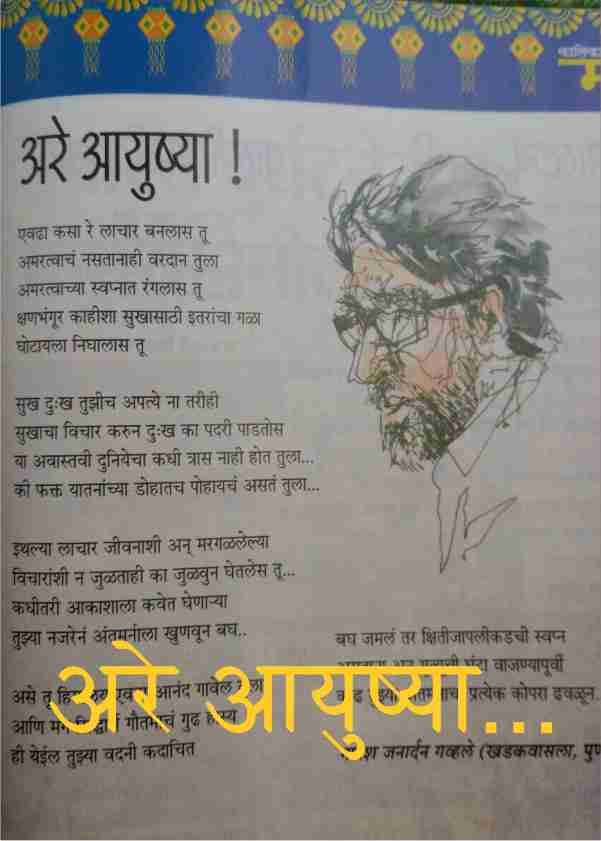 अरे आयुष्या !
एवढा कसा रे लाचार बनलास तू
अमरत्वाचं नसतानाही वरदान तुला
अमरत्वाच्या स्वप्नात रंगलास तू
क्षणभंगूर काहीशा सुखासाठी इतरांचा गळा
घोटायला निघालास तू
सुख दुःख तुझीच अपत्ये ना तरीही
सुखाचा विचार करुन दुःख का पदरी पाडतोस
या अवास्तवी दुनियेचा कधी त्रास नाही होत तुला...
की फक्त यातनांच्या डोहातच पोहायचं असतं तुला...
इथल्या लाचार जीवनाशी अन् मरगळलेल्या
विचारांशी न जुळताही का जुळवुन घेतलेस तू...
कधीतरी आकाशाला कवेत घेणाऱ्या
तुझ्या नजरेनं अंतर्मनाला खुणवून बघ..
असे तू आनंद गावेल
आणि मग गौतमाचं गुढ हास्य
ही येईल तुझ्या वदनी कदाचित
बघ जमलं तर क्षितीजापलीकडची स्वप्न
वाजण्यापूर्वी
प्रत्येक कोपरा ढवळून.
जनार्दन गव्हले (खडकवासला, पुण
अरे आयुष्या...